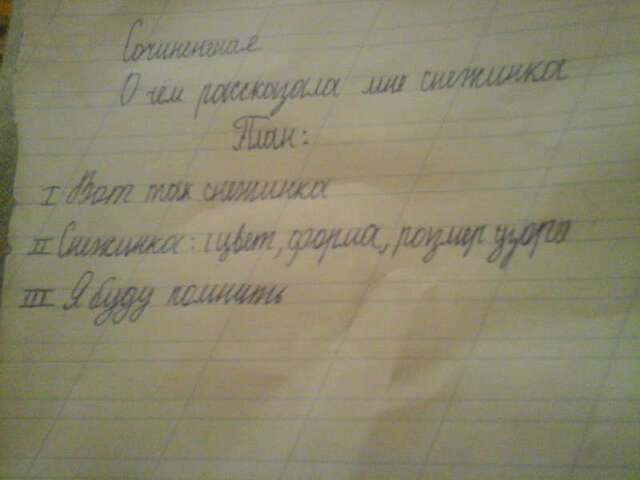 Сочинененая
О чём рассказала мне снежинка
План:
I Вот так снежинка
II Снежинка: цвет, форма, розмер узора
III Я буду помнить